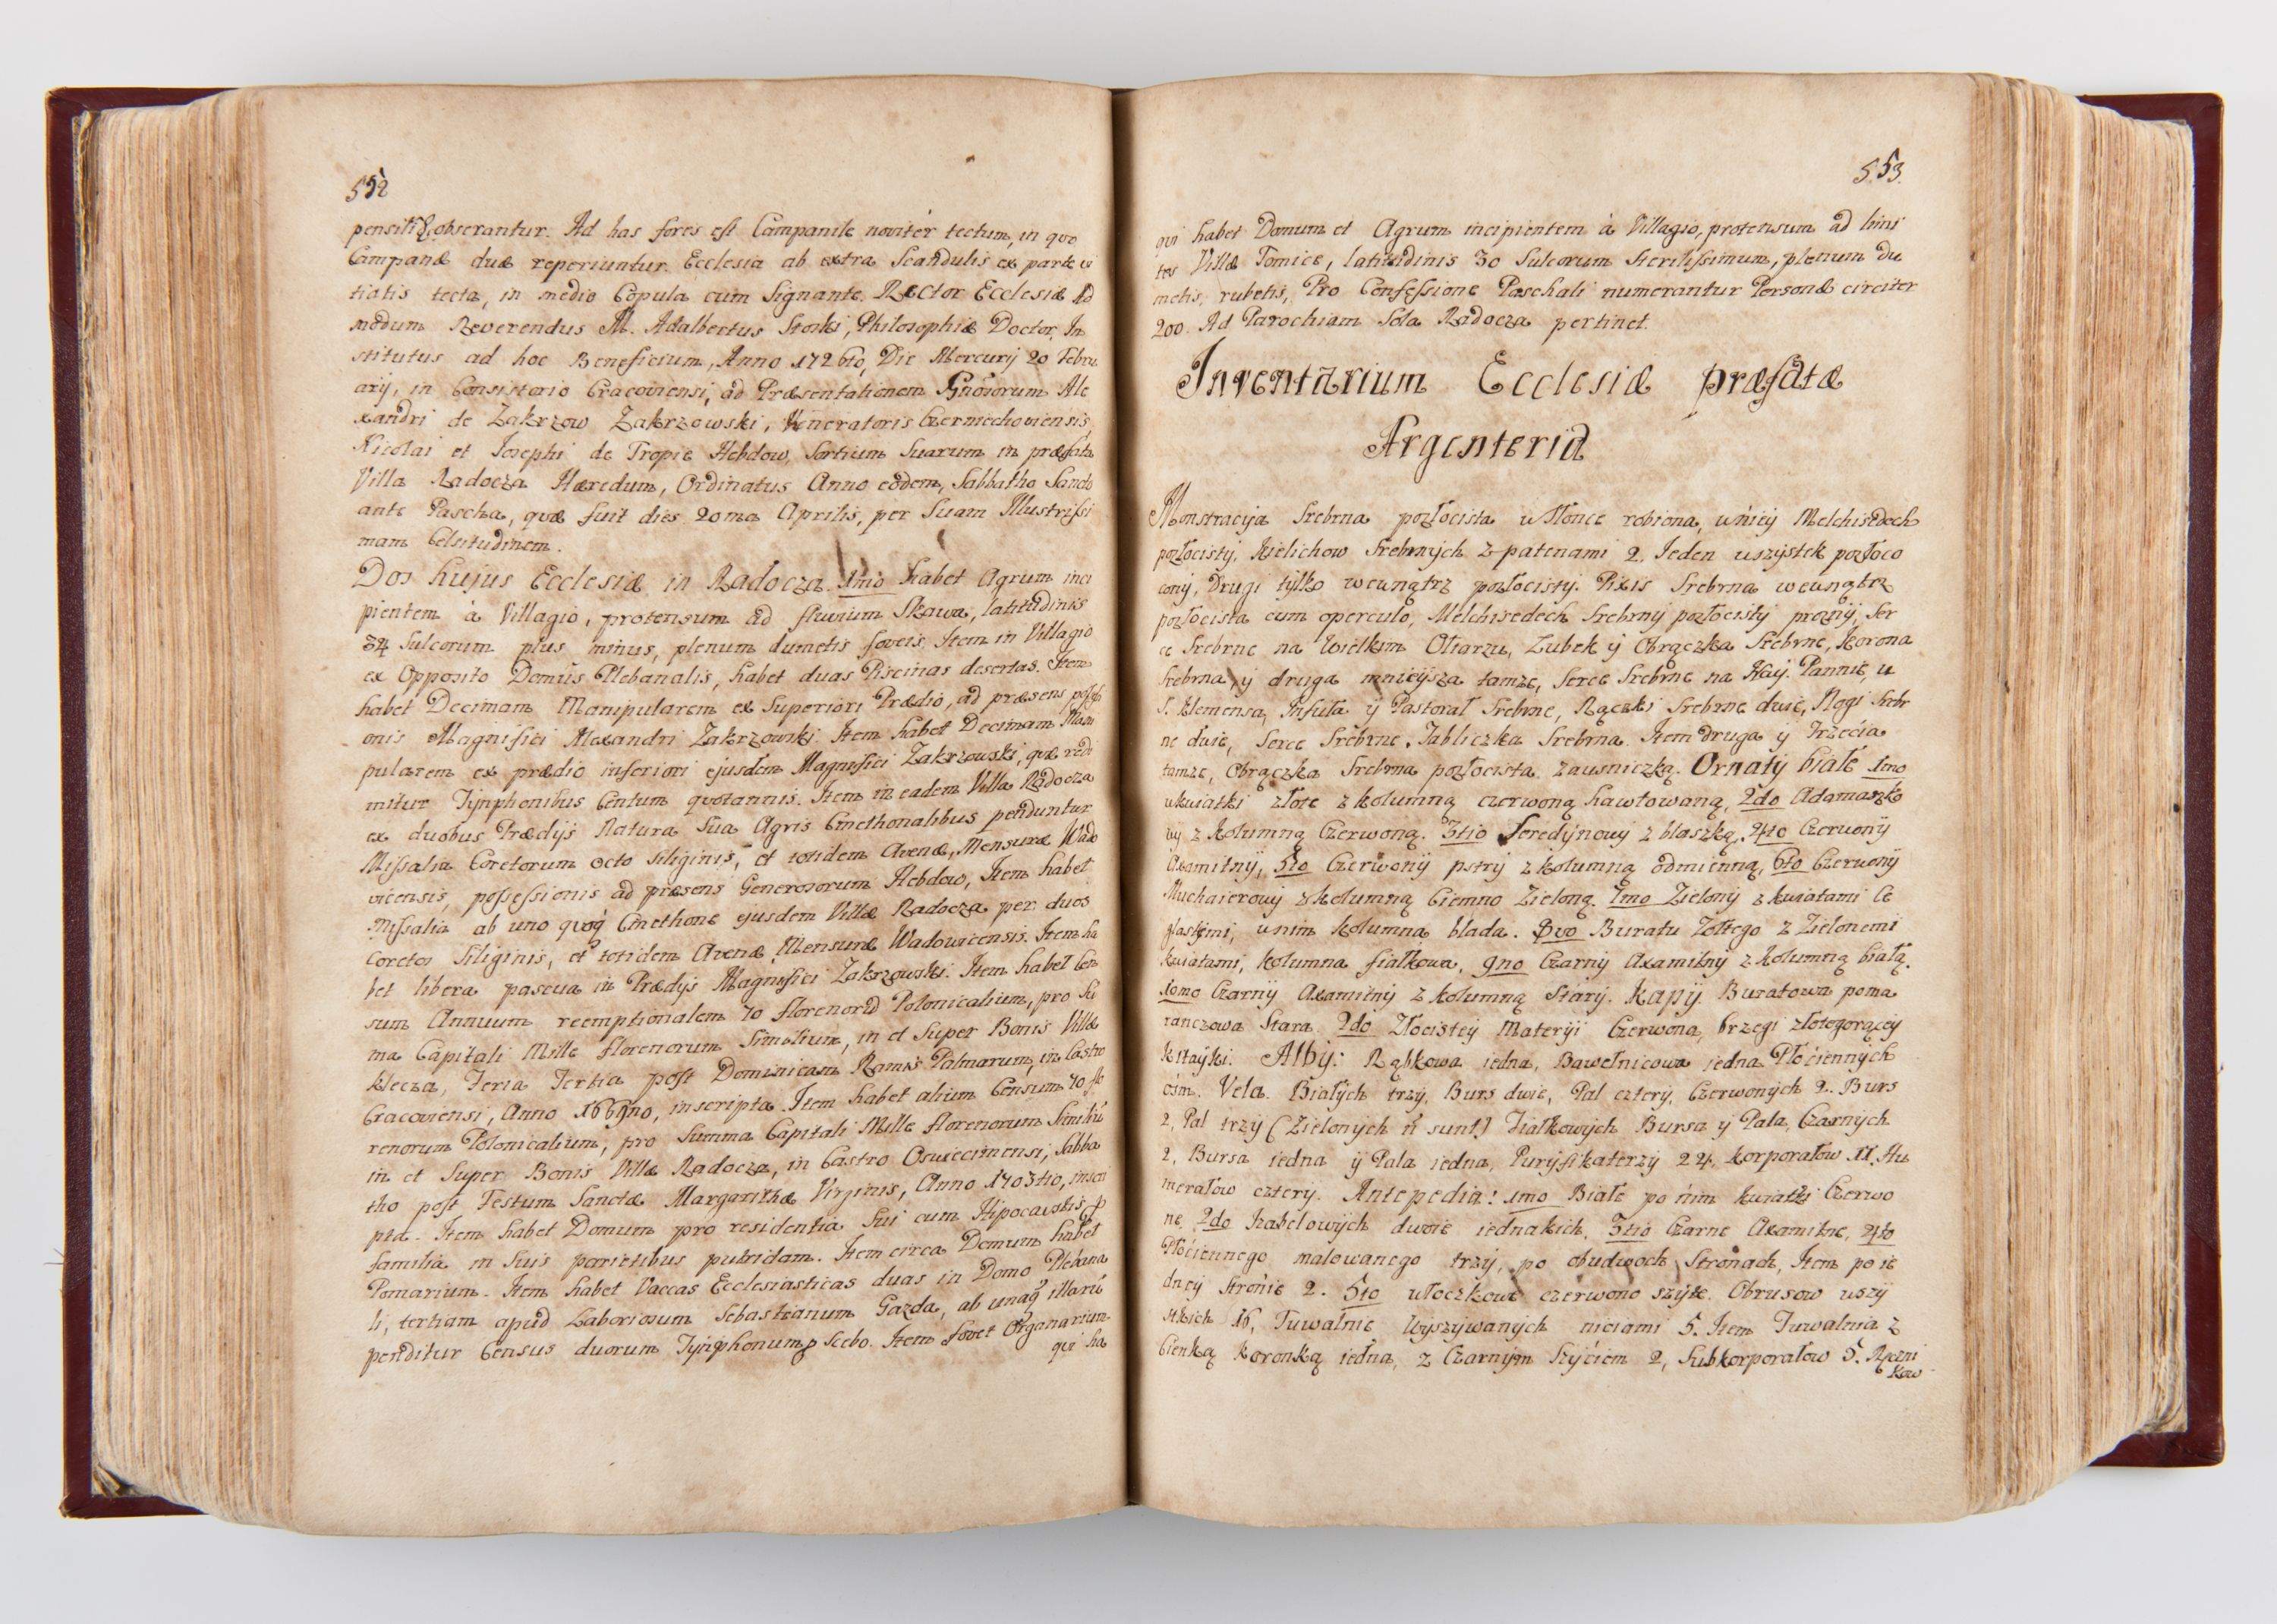 552
pensili obserantur. Ad has fores est Campanile noviter tectum, in quo
Campanæ duæ reperiuntur. Ecclesia ab extra Scandulis ex parte vi
tiatis tecta, in medio Copula cum Signante. Rector Ecclesiæ Ad
modum Reverendus M. Adalbertus Philosophiæ Doctor, In
stitutus ad hoc Beneficium, Anno 1726to, Die Mercurij 20 Febru
arij, in Consistorio Cracoviensi, ad Præsentationem Gnosorum Ale
xandri de Zakrzow Zakrzowski, Veneratoris Czerniechoviensis,
Nicolai et Josephi de Tropie Hebdow, Sortium Suarum in præfata
Villa Radocza Hæredum, Ordinatus Anno eodem, Sabbatho Sancto
ante Pascha, quæ fuit dies 20ma Aprilis, per Suam Illustrissi
mam Celsitudinem.
Dos hujus Ecclesiæ in Radocza. 1mo habet Agrum inci
pientem à Villagio, protensum ad fluvium Skawa, latitudinis
34 Sulcorum plus minus, plenum dumetis foveis. Item in Villagio
ex Opposito Domûs Plebanalis, habet duas Piscinas desertas. Item
habet Decimam Manipularem ex Superiori Prædio, ad præsens possessi
onis Magnifici Alexandri Zakrzowski. Item habet Decimam Mani
pularem ex prædio inferiori ejusdem Magnifici Zakrzowski, quæ redi
mitur Tynphonibus Centum quotannis. Item in eadem Villa Radocza
ex duobus Prædijs Natura Sua Agris Cmethonalibus penduntur
Missalia Coretorum octo Siliginis, et totidem Avenæ, Mensuræ Wado
vicensis, possessionis ad præsens Generosorum Hebdow, Item habet
Missalia ab uno quoq Cmethone ejusdem Villæ Radocza per duos
Coretos Siliginis, et totidem Avenæ, Mensuræ Wadowicensis. Item ha
bet libera pascua in Prædijs Magnifici Zakrzowski. Item habet Cen
sum Annuum reemptionalem 70 florenorū Polonicalium, pro Su
ma Capitali Mille florenorum Similium, in et Super Bonis Villæ
Klecza, Feria Tertia post Dominicam Ramis Palmarum, in Castro
Cracoviensi, Anno 1669no, inscripta. Item habet alium Censum 70 flo
renorum Polonicalium, pro Summa Capitali Mille florenorum Similiū
in et Super Bonis Villæ Radocza, in Castro Oswiecimensi, Sabba
tho post Festum Sanctæ Margarithæ Virginis, Anno 1703tio, inscri
pta. Item habet Domum pro residentia Sui cum Hipocaustis p
familia in Suis parietibus putridam. Item circa Domum habet
Pomarium. Item habet Vaccas Ecclesiasticas duas in Domo Plebana
li, tertiam apud Laboriosum Sebastianum Gazda, ab unaq illarū
penditur Census duorum Tynphonum p Scebo. Item fovet Organarium
qui ha
553.
qui habet Domum et Agrum incipientem à Villagio, protensum ad limi
tes Villæ Tomice, latitudinis 30 Sulcorum Sterilissimum, plenum du
metis, rubetis, Pro Confessione Paschali numerantur Personæ circiter
200. Ad Parochiam Sola Radocza pertinet.
Inventarium Ecclesiæ præfatæ
Argenteria
Monstracyja Srebrna pozłocista w Słonce robiona, w niey Melchisedech
pozłocisty, Kielichow Srebrnych z patenami 2. Jeden wszystek pozłoco
cony, Drugi tylko wewnątrz pozłocisty. Pixis Srebrna wewnątrz
pozłocista cum operculo, Melchisedech Srebrny pozłocisty prożny, Ser
ce Srebrne na Wielkim Ołtarzu, Ząbek y Obrączka Srebrne, Korona
Srebrna y druga mnieysza tamze, Serce Srebrne na Nay. Pannie, u
S. Klemensa, Infuła y Pastorał Srebrne, Rączki Srebrne dwie, Nogi Srebr
ne dwie, Serce Srebrne, Tabliczka Srebrna. Item druga y Trzecia
tamze, Obrączka Srebrna pozłocista zausniczką. Ornaty białe 1mo
w kwiatki złote z kolumną czerwoną hawtowaną, 2do Adamaszko
wy z Kolumną Czerwoną. 3tio Feredynowy z blaszką. 4to Czerwony
Axamitny, 5to Czerwony pstry z kolumną odmienną, 6to Czerwony
Muchaierowy z kolumną Ciemno Zieloną. 7mo Zielony z kwiatami Ce
glastymi, w nim kolumna blada. 8vo Buratu Zołtego z Zielonemi
kwiatami, kolumna fiałkowa, 9no Czarny Axamitny z kolumną białą.
10mo Czarny Axamitny z kolumną Stary. Kapy Buratowa poma
ranczowa Stara. 2do Złocistey Materyi Czerwona, brzegi złotogorącey
Kitayki. Alby: Rąbkowa iedna, Bawełnicowa iedna Płóciennych
ośm. Vela. Białych trzy, Burs dwie, Pal cztery, Czerwonych 2. Burs
2, Pal trzy (Zielonych ñ sunt) Fiałkowych Bursa y Pala, Czarnych
2, Bursa iedna y Pala iedna, Puryfikaterzy 24. Korporałow 11. Hu
merałow cztery. Antepedia: 1mo Białe po nim kwiatki Czerwo
ne, 2do Izabelowych dwoie iednakich, 3tio Czarne Axamitne, 4to
Płóciennego malowanego trzy, po obudwoch Stronach, Item po ie
dney Stronie 2. 5to włoczkowe czerwono szyte. Obrusow wszy
stkich 16, Tuwalnie Wyszywanych niciami 5. Item Tuwalnia z
Cienką Koronką iedna, z Czarnym Szyciem 2, Subkorporałow 5. Ręczni
kow